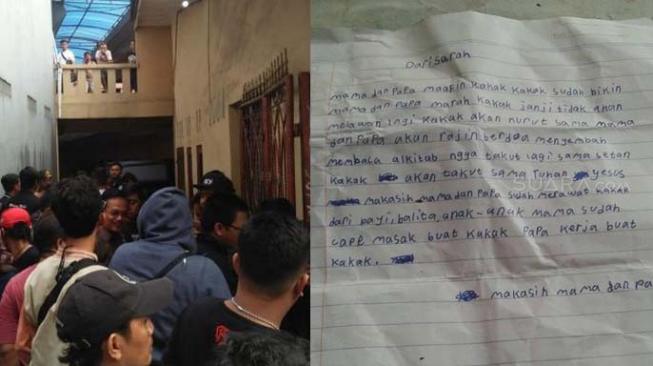 Dari sarah
mama dan papa maafin kakak kakak sudah bikin
mama dan papa marah kakak janji tidak akan
melawan lagi kakak akan nurut sama mama
dan papa akan rajin berdoa menyembah
membaca alkitab ngga takut lagi sama setan
kakak akan takut sama Tuhan yesus
makasih mama dan papa sudah merawat kakak
dari bayi, balita, anak-anak mama sudah
cape masak buat kakak papa kerja buat
kakak.
makasih mama dan pa
SUARA